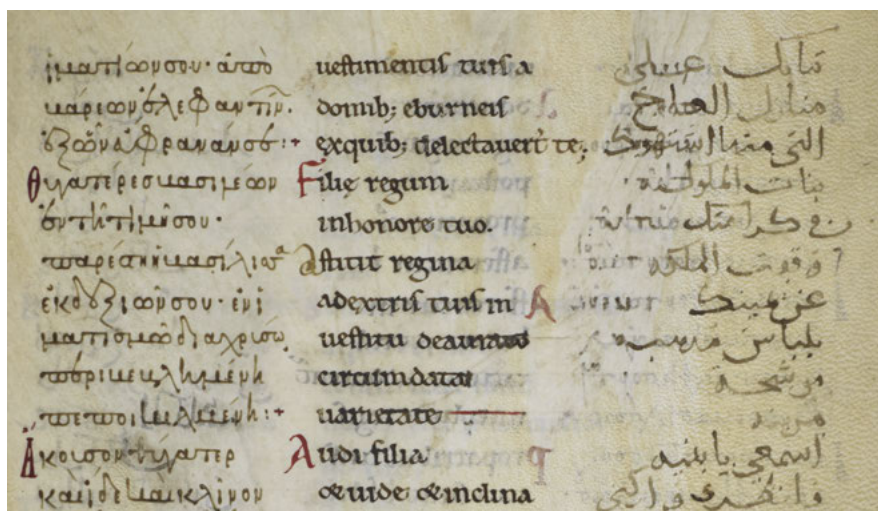 ἱματίων σου· ἀπὸ
βάρεων ἐλεφαντίν.
ἐξ ὧν ἐυφρανάν σε:+
θυγατέρες βασιλέων
ἐν τῆ τιμῆ σου·
παρέστη ἡ βασίλισα
ἐκ δεξιῶν σου· ἐν ἱ
ματισμῶ διαχρισω
περιβεβλημένη
πεποικιλμένη:+
Ἄκοισον θύγατερ
και ἰδε και κλίνον
uestimentis tuis a
domib; eburneis
exquib; delectauer̄t te;
Filię regum
inhonore tuo.
Astitit regina
adextris tuis in
uestitu deaurato
circumdata
uarietate
Audi filia
& uide & inclina
ثيابك
منازل العاج
التي منها
بنات الملوك
في كرامتك
وقفت الملكه
عن يمينك
بلباس مذهب
موشحة
اسمعي يا بنيه
وانظري و